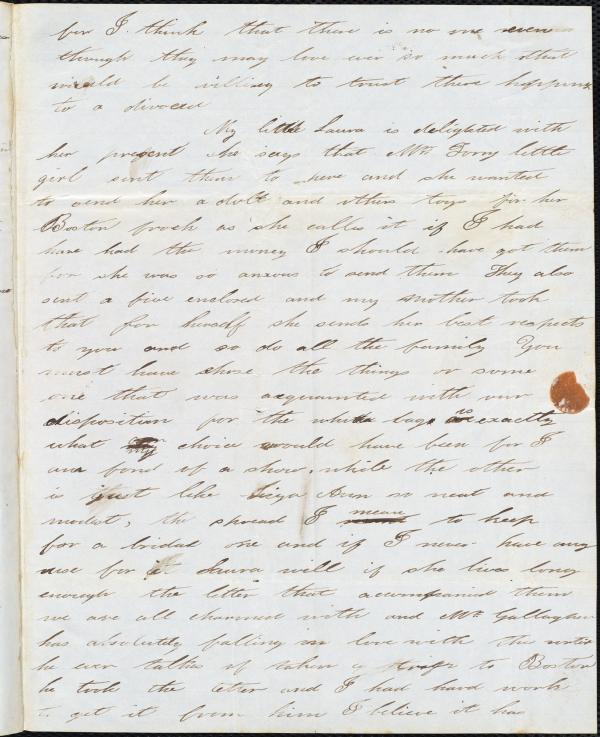 for I think that there is no one even
though they may love ever so much that
would be willing to trust there happiness
to a divoced
My little Laura is delighted with
her present she says that Mrs Torry little
girl sent them to here and she wanted
to send her a doll and others toys for her
Boston frock as she calles it if I had
have had the money I should have got them
for she was so anxous to send them They also
sent a five enclosed and my mother took
that for herself she sends her best respects
to you and so do all the family You
must have chose the things or some
one that was acquainted with our
disposition for the white bag is exactly
what my choice would have been for I
am fond of a show, while the other
is just like Liza Ann so neat and
modest, the spread I mean to keep
for a bridal one and if I never have any
use for it Laura will if she lives long
enough the letter that accompanied them
we are all charmed with and Mr Gallagher
has absolutely falling in love with the writer
he ever talkes of taken a trip to Boston
he took the letter and I had hard work
to get it from him I believe it has